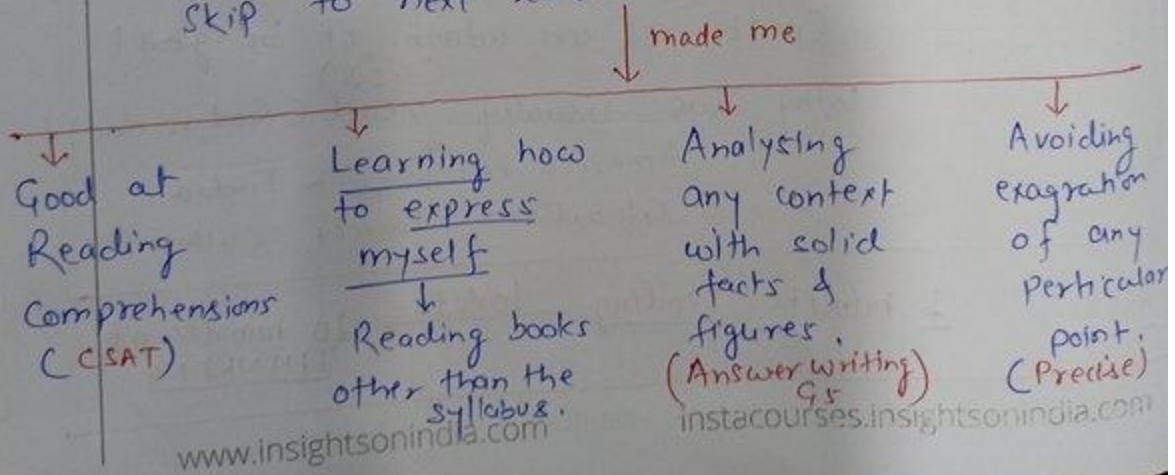 Skip to next
made me
Good at
Reading
Comprehensions
(CSAT)
Learning how
to express
myself
Reading books
other than the
syllabus.
Analysing
any context
with solid
facts &
figures.
(Answer writing)
GS
Avoiding
exagration
of any
perticular
point.
(Precise)
www.insightsonindia.com
instacourses.insightsonindia.com